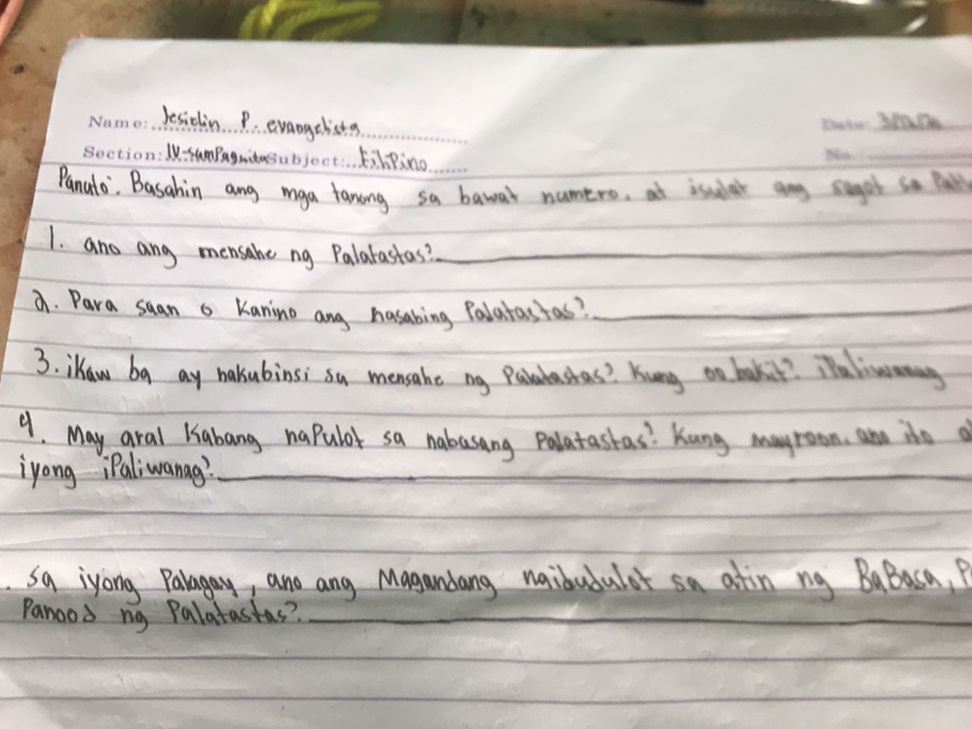 Name: Jesielin P. evangelista
Date:
Section: IV-SamPaguita Subject: FiliPino
No.
Panuto: Basahin ang mga tanong sa bawat numero. at isulat ang sagot sa
1. ano ang mensahe ng Palatastas?
2. Para saan o Kanino ang nasabing Palatastas?
3. iKaw ba ay nakubinsi sa mensahe ng Palatastas? Kung oo bakit? iPaliwanag
4. May aral Kabang naPulot sa nabasang Palatastas? Kung mayroon. ano ito
iyong iPaliwanag?
. Sa iyong Palagay, ano ang Magandang naibudulot sa atin ng BaBasa,
Panood ng Palatastas?